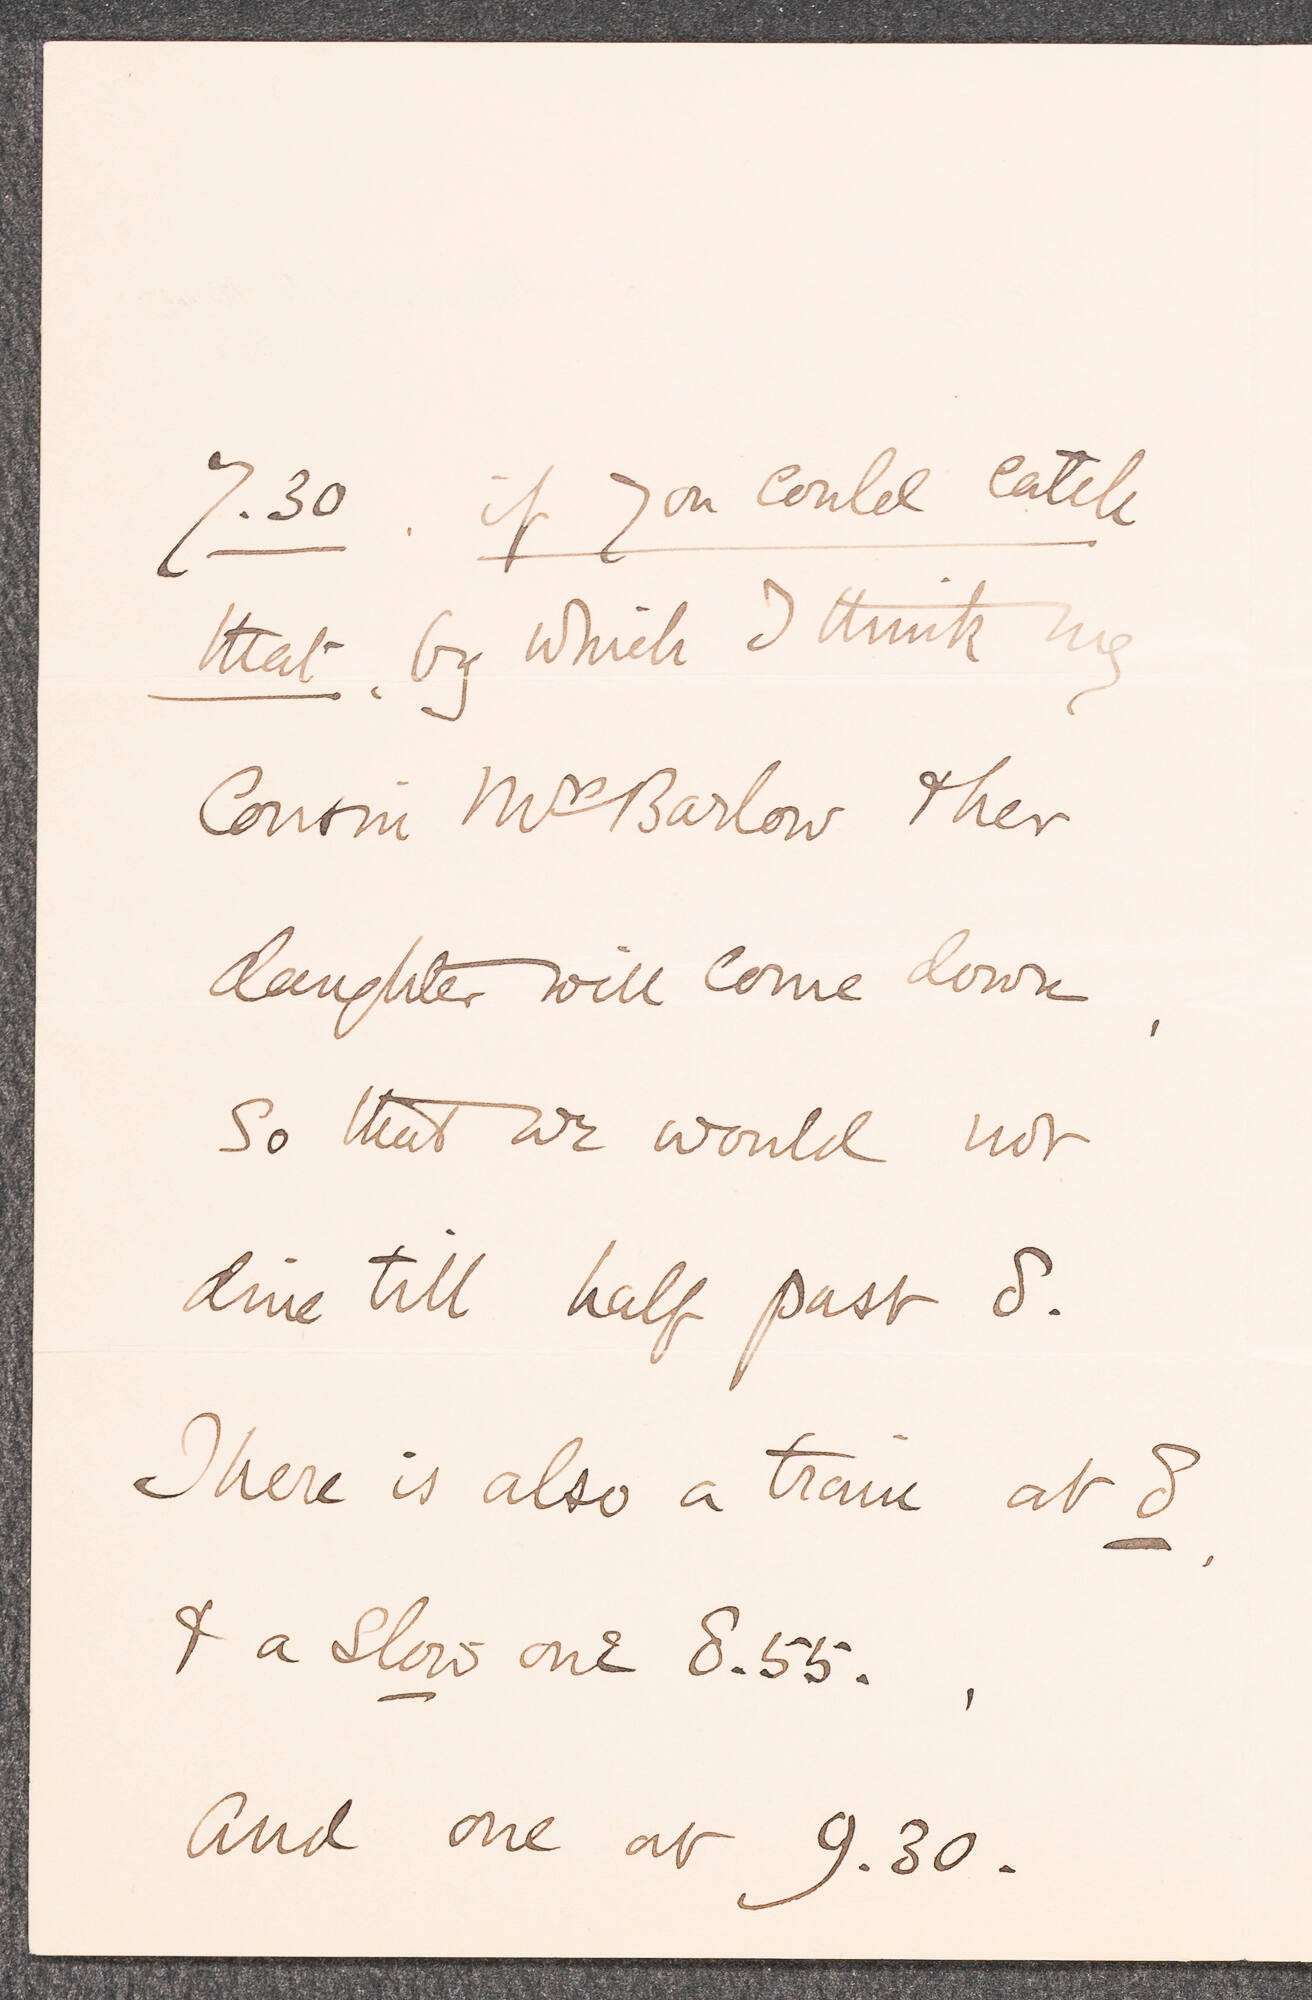 7.30. if you could catch
that, by which I think my
Cousin Mrs Barlow & her
daughter will come down,
So that we would not
dine till half past 8.
There is also a train at 8,
& a slow one 8.55.,
And one at 9.30.